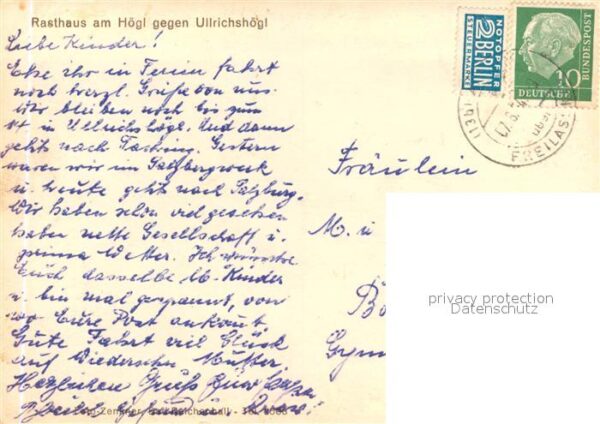 Rasthaus am Högl gegen Ullrichshögl
Liebe Kinder!
Ehe ihr in Ferien fahrt
noch herzl. Grüße von uns.
Wir bleiben noch bis zum
in Ullrichshögl. Und dann
geht nach. Gestern
waren wir im Salzbergwerk
u. heute geht nach Salzburg.
Wir haben schon viel gesehen
haben nette Gesellschaft u.
prima Wetter. Ich wünsche
Euch dasselbe lb. Kinder
u. bin mal gespannt, von
wo Eure Post ankomt.
Gute Fahrt viel Glück
auf Wiedersehn Mutter
Herzlichen Gruß
NOTOPFER
2 BERLIN
STEUERMARKE
10
DEUTSCHE
BUNDESPOST
FREILAS
Fräulein
M. u
Gym
privacy protection
Datenschutz